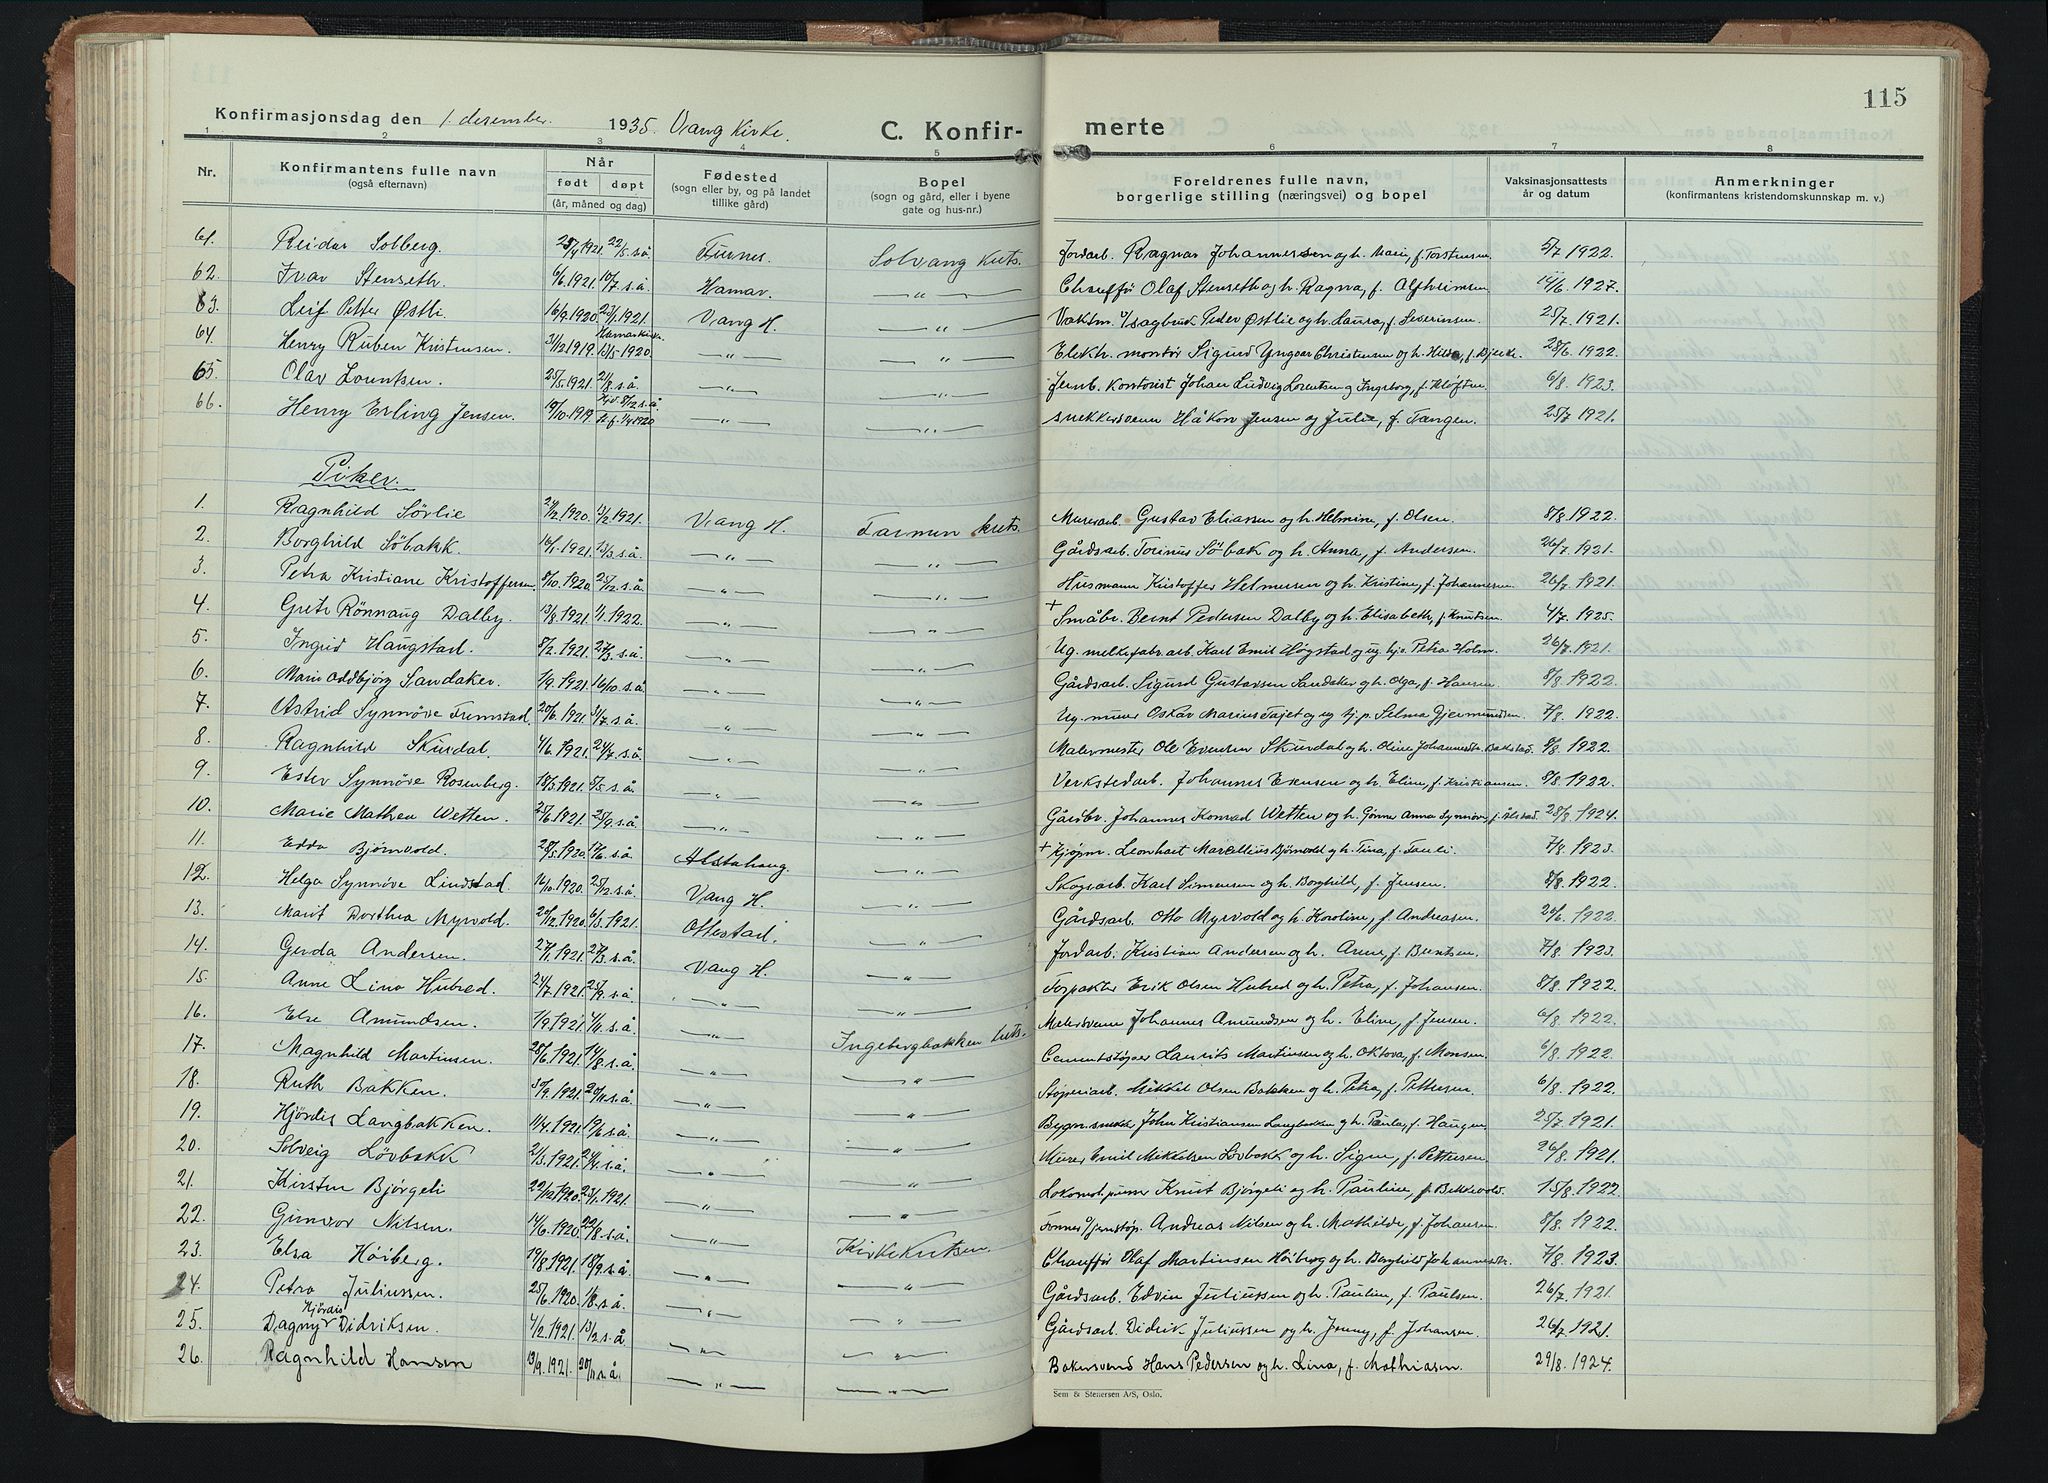 115
Konfirmasjonsdag den 1. desember 1935. Vang Kirke. C. Konfir- merte
1 2 3 4 5 6 7 8
Nr. Konfirmantens fulle navn (også efternavn) Når født døpt (år, måned og dag) Fødested (sogn eller by, og på landet tillike gård) Bopel (sogn og gård, eller i byene gate og hus-nr.) Foreldrenes fulle navn, borgerlige stilling (næringsvei) og bopel Vaksinasjonsattests år og datum Anmerkninger (konfirmantens kristendomskunnskap m. v.)
61. Reidar Solberg. 25/4 1921. 22/5 s.å. Furnes. Solvang krets. Jordarb. Ragnar Johannessen og h. Marie, f. Torstensen. 5/7 1922.
62. Ivar Stenseth. 6/6 1921. 10/7 s.å. Hamar. —„— Chauffør Olaf Stenseth og h. Ragna, f. Alfheimsen 14/6 1927.
63. Leif Petter Østli. 16/9 1920. 23/1 1921. Vang H. —„— Vaktm. v/sagbruk Peder Østlie og h. Laura, f. Severinsen. 25/7 1921.
64. Henry Ruben Kristensen. 31/12 1919. Hamar kirke. 13/5 1920. —„— —„— Elektr. montør Sigurd Yngvar Christensen og h. Hilda, f. Bjerke. 28/6 1922.
65. Olav Lorentsen. 25/5 1921. 21/8 s.å. —„— —„— Jernb. kontorist Johan Ludvig Lorentsen og Ingeborg, f. Kløften. 6/8 1923.
66. Henry Erling Jensen. 19/10 1919. Hjd. 8/12 s.å. st.f. 1/4 1920 —„— —„— snekkersvenn Håkon Jensen og Julie, f. Tangen. 25/7 1921.
Piker.
1. Ragnhild Sørlie 24/12 1920. 13/2 1921. Vang H. Farmen krets. Murerarb. Gustav Eliassen og h. Helmine, f. Olsen. 8/8 1922.
2. Borghild Søbakk. 14/1 1921. 13/3 s.å. —„— —„— Gårdsarb. Torinus Søbak og h. Anna, f. Andersen. 26/7 1921.
3. Petra Kristiane Kristoffersen. 8/10 1920. 25/12 s.å. —„— —„— Husmann Kristoffer Helmersen og h. Kristine, f. Johannesen. 26/7 1921.
4. Grete Rønnaug Dalby. 13/8 1921. 1/1 1922. —„— —„— + Småbr. Bernt Pedersen Dalby og h. Elisabeth, f. Knutsen. 4/7 1925.
5. Ingrid Haugstad. 8/2 1921. 27/3 s.å. —„— —„— Ug. melkefabr.arb. Karl Emil Høgstad og ug. Petra Holm. 26/7 1921.
6. Marie Oddbjørg Sandaker. 1/9 1921. 16/10 s.å. —„— —„— Gårdsarb. Sigurd Gustavsen Sandaker og h. Olga, f. Hansen. 8/8 1922.
7. Astrid Synnøve Fremstad. 20/6 1921. 31/7 s.å. —„— —„— Ug. murer Oskar Marius Fajet og ug. tj.p. Selma Gjermundsen. 7/8 1922.
8. Ragnhild Skurdal. 4/6 1921. 24/7 s.å. —„— —„— Malermester Ole Evensen Skurdal og h. Oline Johannesdtr. Bakstad. 8/8 1922.
9. Ester Synnøve Rosenberg. 18/3 1921. 5/5 s.å. —„— —„— Verkstedarb. Johannes Evensen og h. Eline, f. Kristiansen. 8/8 1922.
10. Marie Mathea Wetten. 25/6 1921. 25/9 s.å. —„— —„— Gårdbr. Johannes Konrad Wetten og h. Gønne Anna Synnøve, f. Alstad. 28/8 1924.
11. Edda Bjørnvold. 28/5 1920. 17/6 s.å. Alstahaug. —„— + Kjøpm. Leonhart Marcellius Bjørnvold og h. Tina, f. Fauli. 7/8 1923.
12. Helga Synnøve Lindstad. 16/10 1920. 25/12 s.å. Vang H. —„— Skogsarb. Karl Simensen og h. Borghild, f. Jensen. 8/8 1922.
13. Marit Dorthea Myrvold. 20/12 1920. 6/3 1921. Ottestad. —„— Gårdsarb. Otto Myrvold og h. Karoline, f. Andreasen. 20/6 1922.
14. Gerda Andersen. 27/1 1921. 27/3 s.å. Vang H. —„— Jordarb. Kristian Andersen og h. Anne, f. Berntsen. 7/8 1923.
15. Anne Lina Hubred. 24/7 1921. 25/9 s.å. —„— —„— Forpakter Erik Olsen Hubred og h. Petra, f. Johansen. 8/8 1922.
16. Else Amundsen. 1/9 1921. 4/11 s.å. —„— —„— Malersvenn Johannes Amundsen og h. Eline, f. Jensen. 6/8 1922.
17. Magnhild Martinsen. 28/6 1921. 14/8 s.å. —„— Ingebergbakken krets. Cementstøper Laurits Martinsen og h. Oktova, f. Monsen. 6/8 1922.
18. Ruth Bakken. 30/9 1921. 20/11 s.å. —„— —„— Støperiarb. Mikkel Olsen Bakken og h. Petra, f. Pettersen. 6/8 1922.
19. Hjørdis Langbakken. 11/4 1921. 19/6 s.å. —„— —„— Bygn.snekk. John Kristiansen Langbakken og h. Paula, f. Haugen. 25/7 1921.
20. Solveig Løvbakk 2/3 1921. 24/4 s.å. —„— —„— Murer Emil Mikkelsen Løvbakk og h. Signe, f. Pettersen. 26/8 1921.
21. Kirsten Bjørgeli 22/10 1920. 23/1 1921. —„— —„— Lokomot.pusser Knut Bjørgeli og h. Pauline, f. Bekkevold. 15/8 1922.
22. Gunvor Nilsen. 14/6 1920. 22/8 s.å. —„— —„— Former v/jernstøp. Andreas Nilsen og h. Mathilde, f. Johansen. 8/8 1922.
23. Elsa Høiberg. 19/8 1921. 18/9 s.å. —„— Kirkekretsen. Chauffør Olaf Martinsen Høiberg og h. Borghild Johannesdtr. 7/8 1923.
24. Petra Juliussen. 25/6 1920. 1/8 s.å. —„— —„— Gårdsarb. Edvin Juliussen og h. Pauline, f. Paulsen. 26/7 1921.
25. Dagny Hjørdis Didriksen. 4/2 1921. 13/2 s.å. —„— —„— Gårdsarb. Didrik Juliussen og h. Jenny, f. Johansen. 26/7 1921.
26. Ragnhild Hansen 13/9 1921. 20/11 s.å. —„— —„— Bakersvend Hans Pedersen og h. Lina, f. Mathiasen. 29/8 1924.
Sem & Stenersen A/S, Oslo.